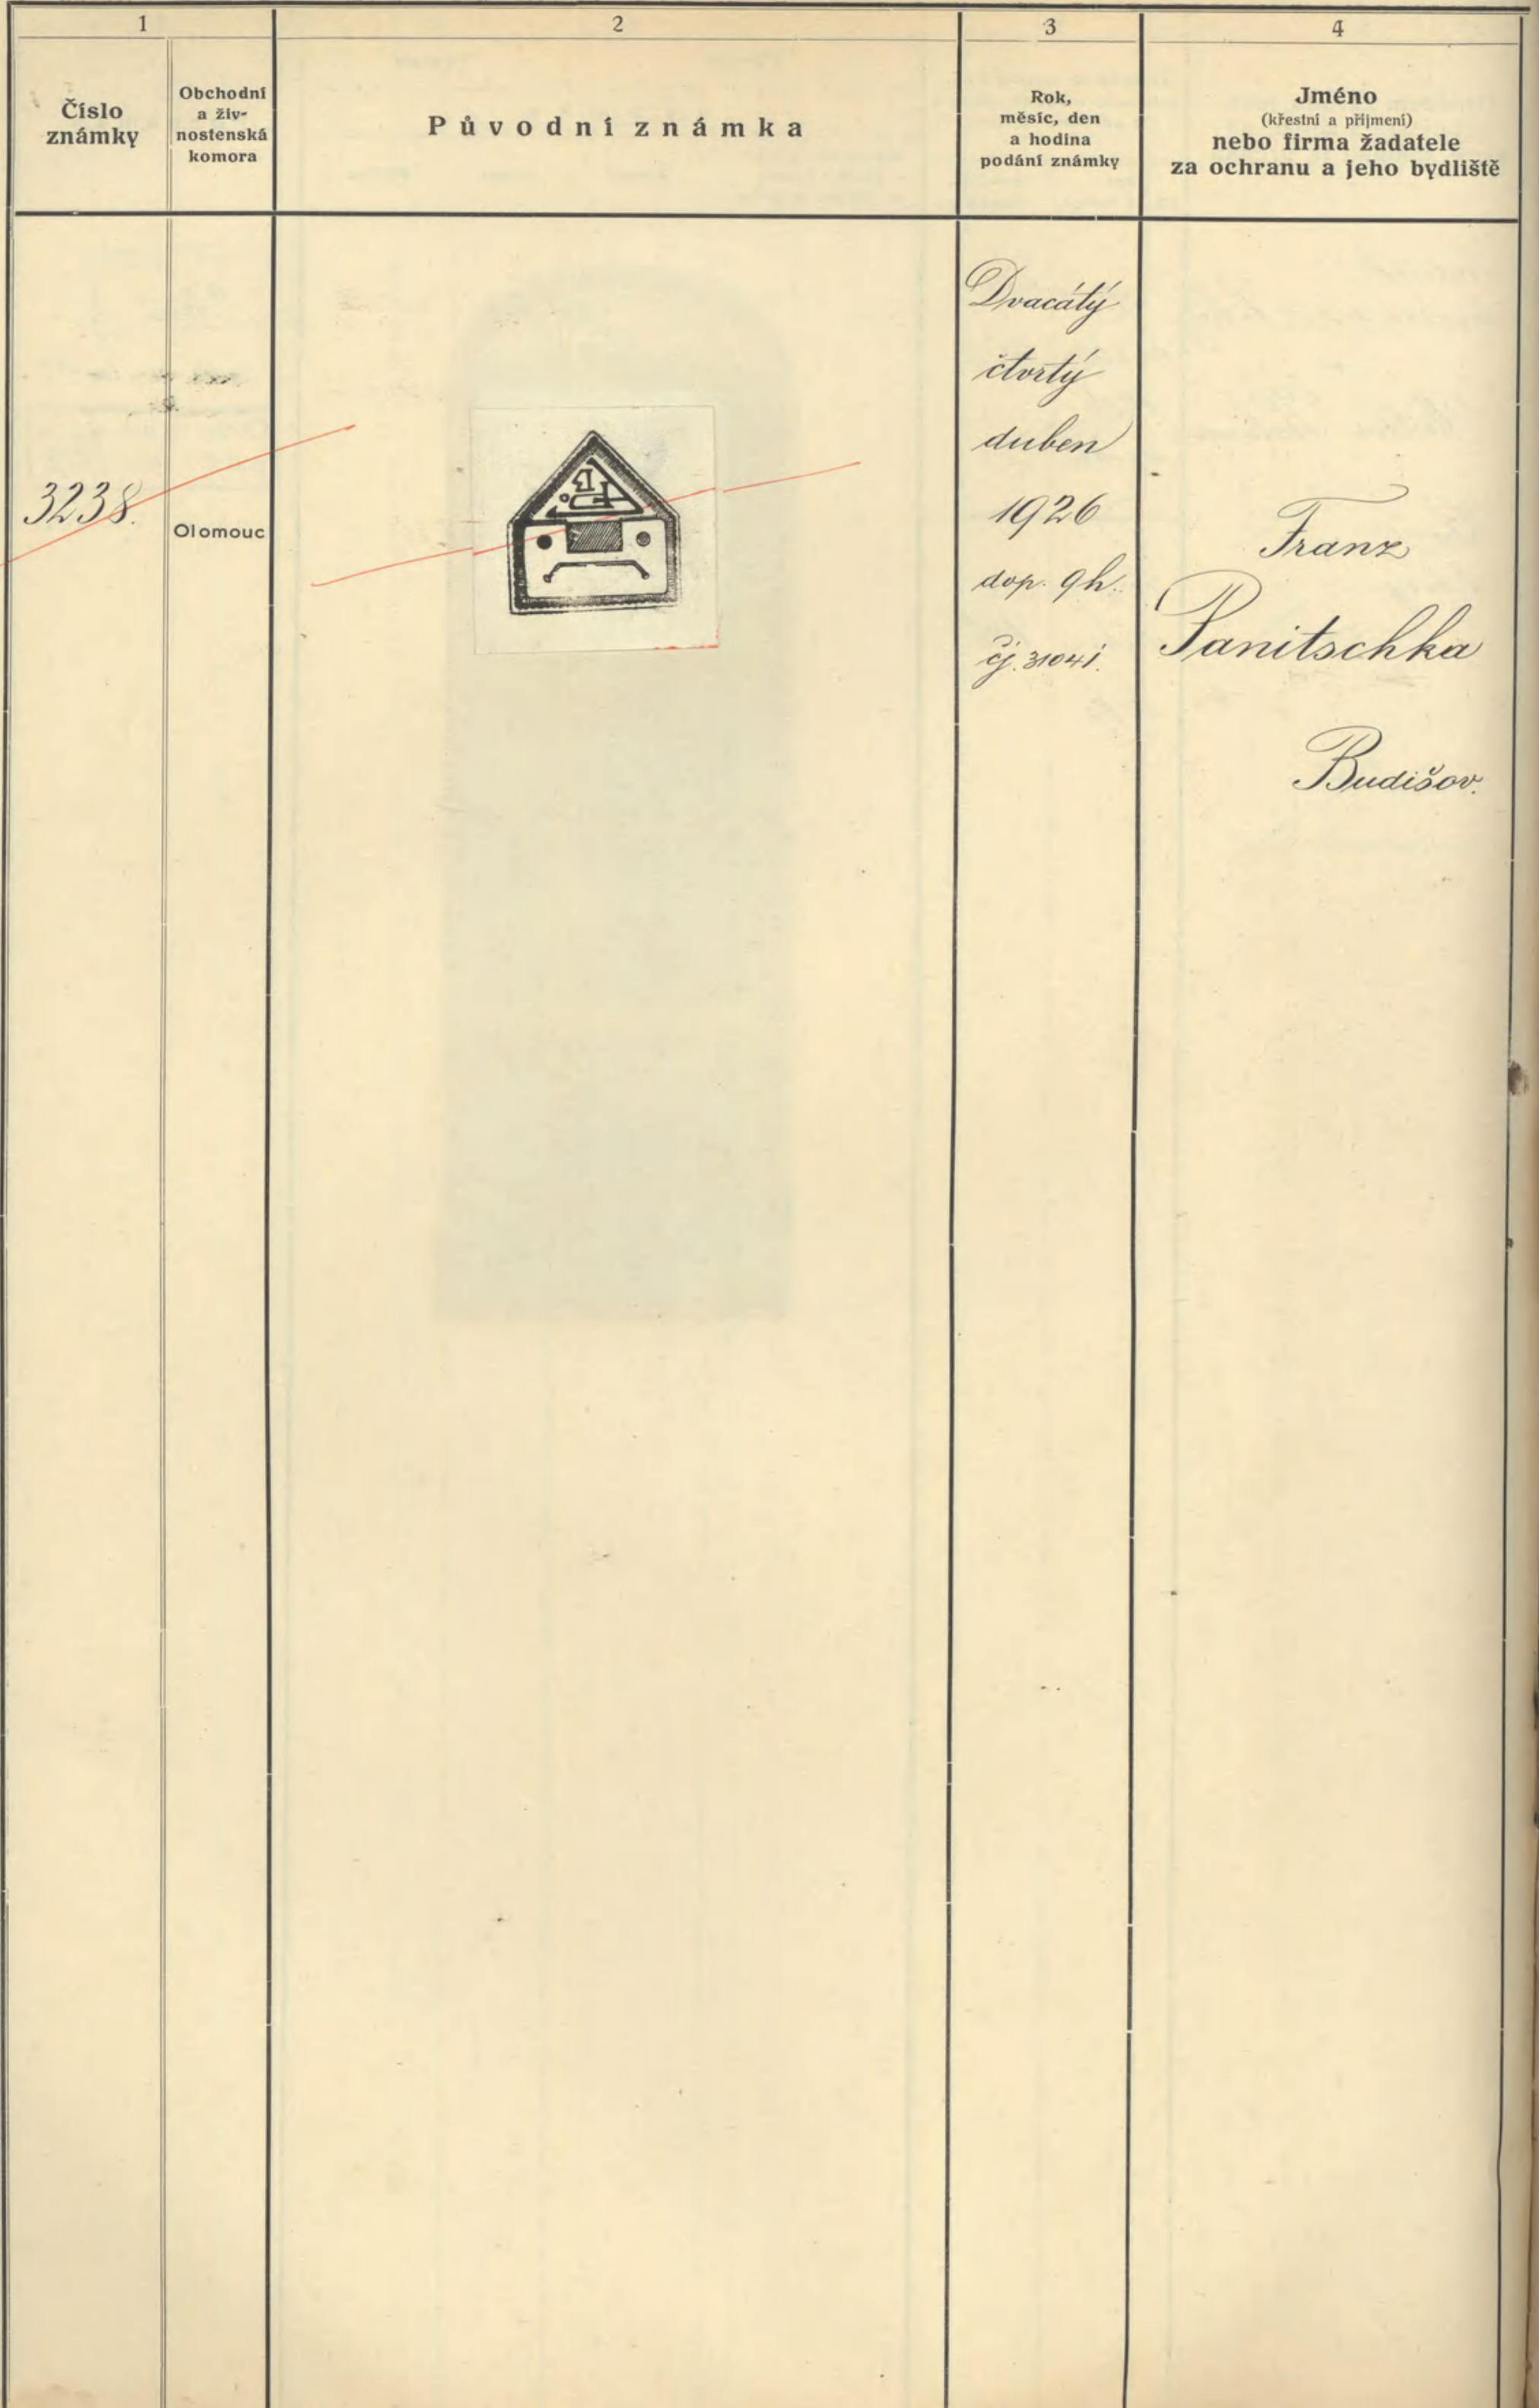 1
2
3
4
Číslo
známky
Obchodní
a živ-
nostenská
komora
Původní známka
Rok,
měsíc, den
a hodina
podání známky
Jméno
(křestní a příjmení)
nebo firma žadatele
za ochranu a jeho bydliště
3238.
Olomouc
Dvacátý
čtvrtý
duben
1926
dop. 9h.
čj. 31041.
Franz
Panitschka
Budišov.